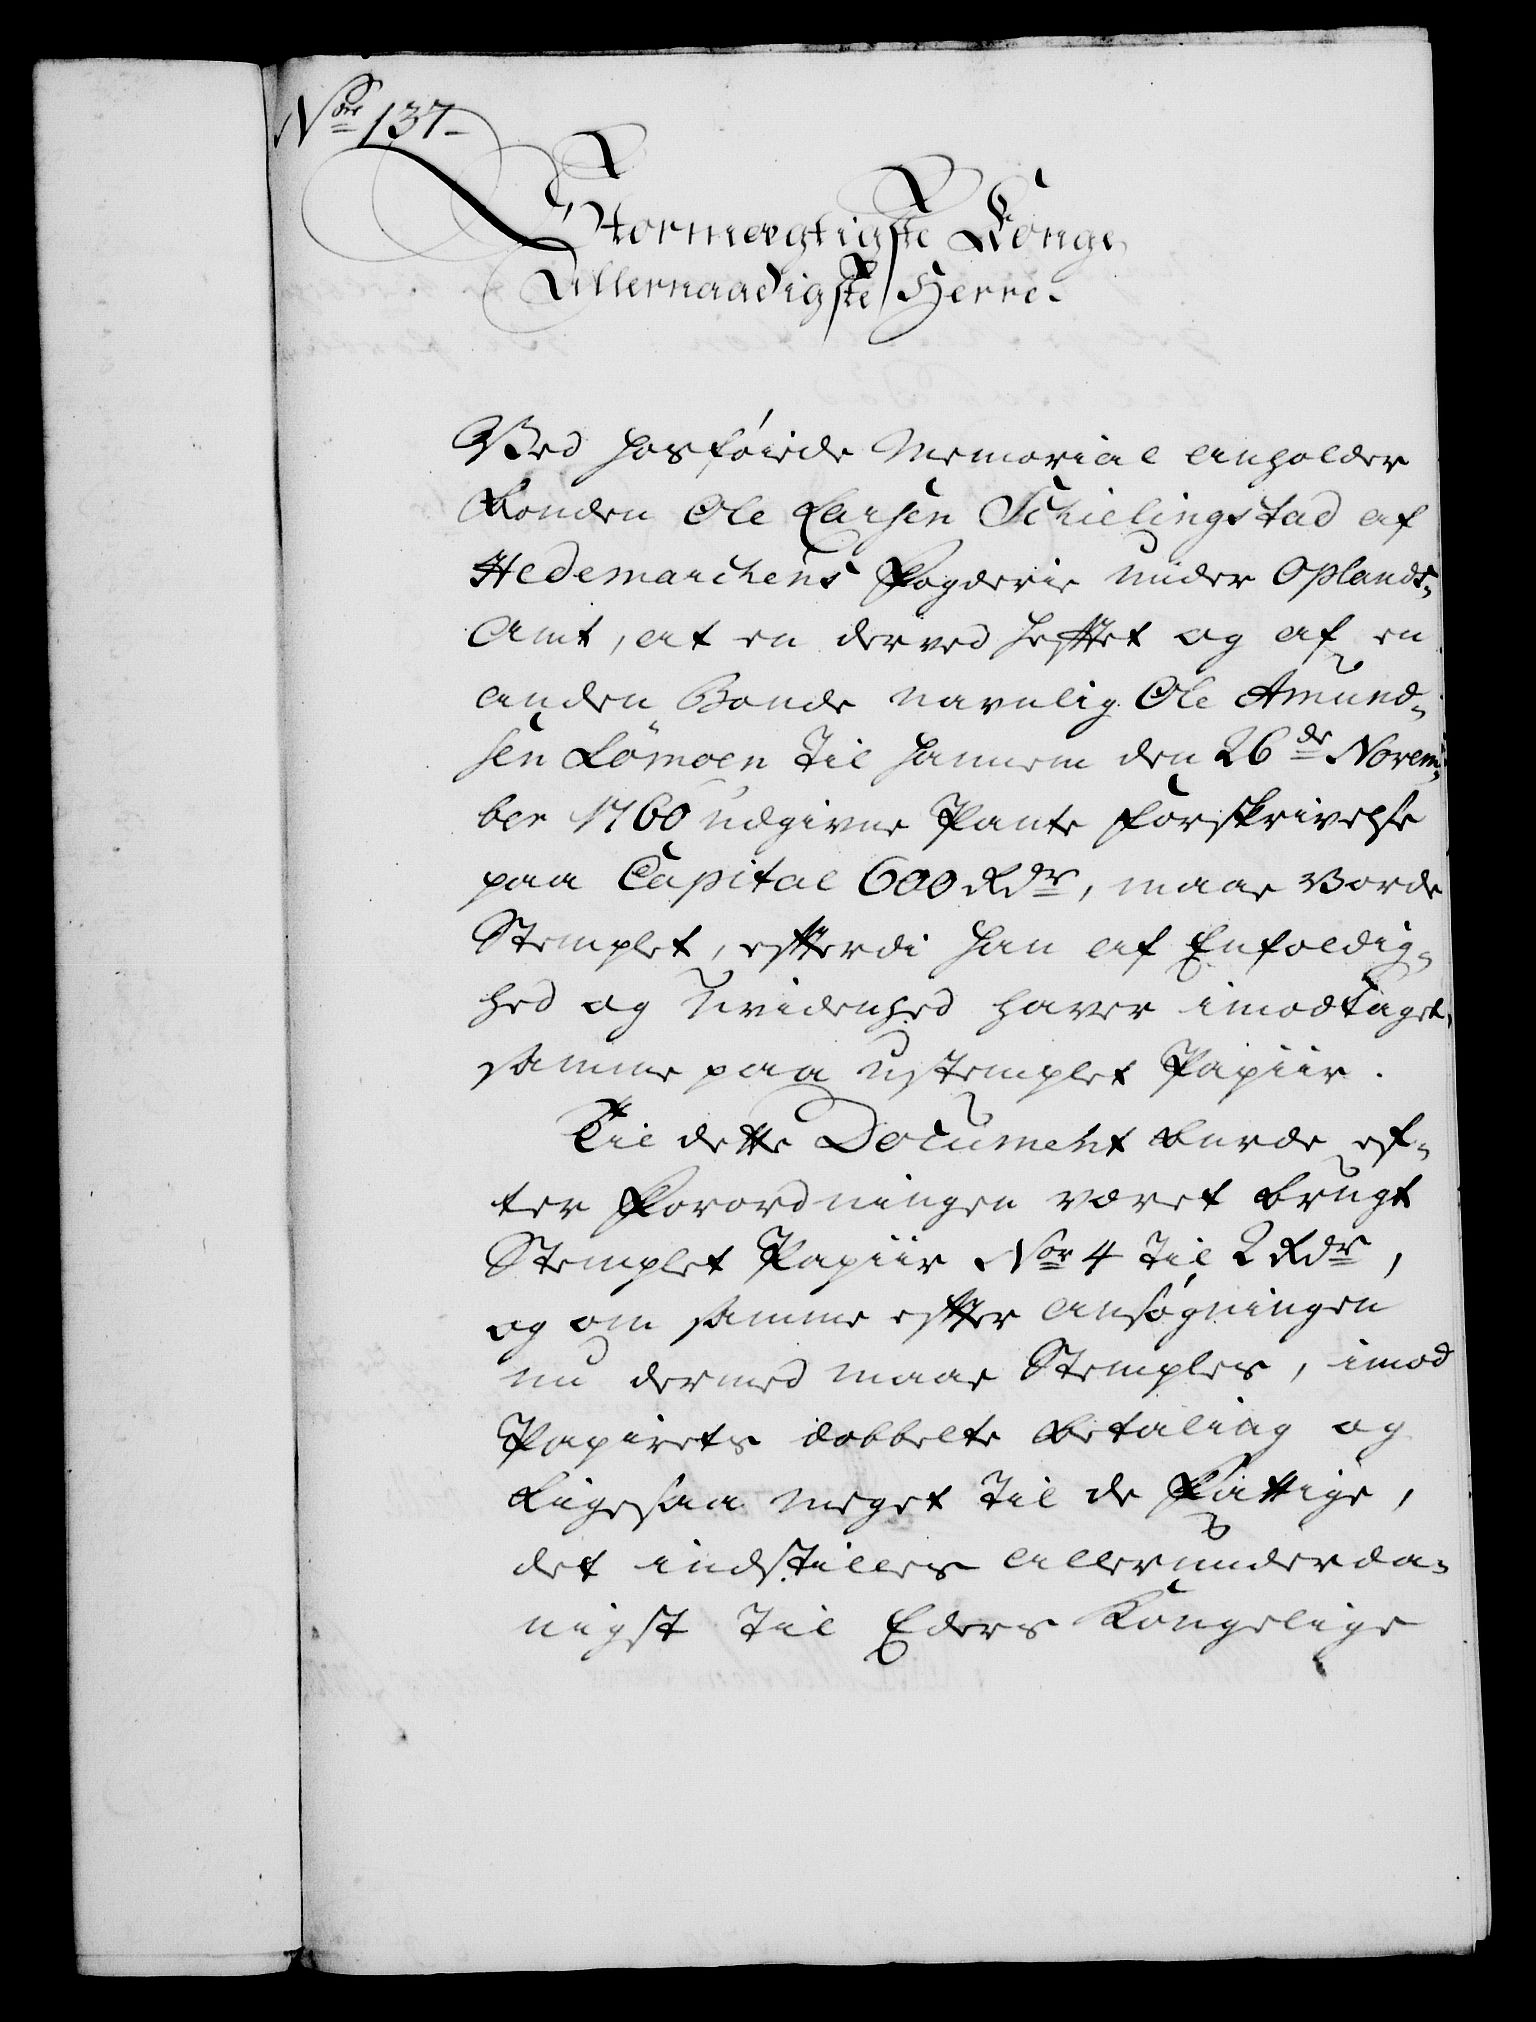 Nor 137-
Stormægtigste Konge
Allernaadigste Herre.
Ved hosføiede Memorial anholder
Bonden Ole Larsen Schielingstad af
Hedemarchens Fogderie under Oplands-
Amt, at en derved hefftet og af en
anden Bonde navnlig Ole Amund-
sen Lømoen til hannem den 26de Novem-
ber 1760 udgivne Pante Forskrivelse
paa Capital 600 Rdr, maae vorde
Stemplet, efterdi han af Eenfoldig-
hed og Uvidenhed haver imodtaget,
samme paa ustemplet Papiir.
Til dette Document burde ef-
ter Forordningen været brugt
Stemplet Papiir Nor 4 til 2 Rdr,
og om samme efter ansøgningen
nu dermed maae Stemples, imod
Papirets dobbelte Betaling og
Ligesaa meget til de Fattige,
det indstilles allerunderda-
nigst til Eders Kongelige